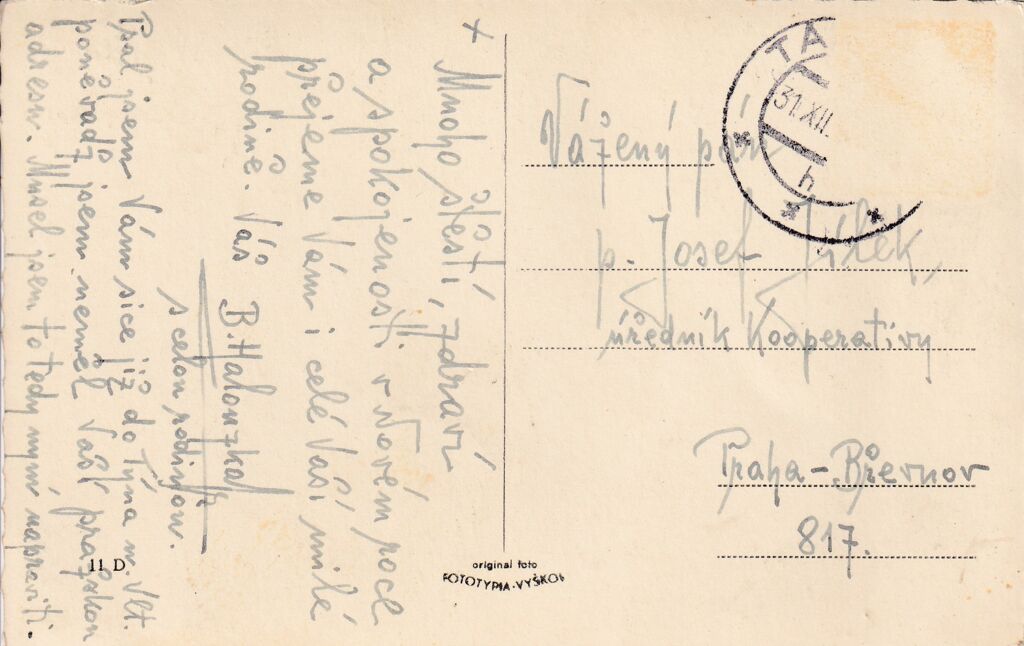 +
Mnoho štěstí, zdraví
a spokojenosti v Novém roce
přejeme Vám i celé Vaší milé
rodině. Váš B. Halouzka
s celou rodinou.
Psal jsem Vám sice již do Týna n. Vlt.
poněvadž jsem neměl Vaší pražskou
adresu. Musel jsem to tedy nyní napraviti.
Vážený pán
p. Josef Jílek,
úředník Kooperativy
Praha-Břevnov
817.
TÁ
31.XII.
h
11 D
original foto
FOTOTYPIA-VYŠKOV